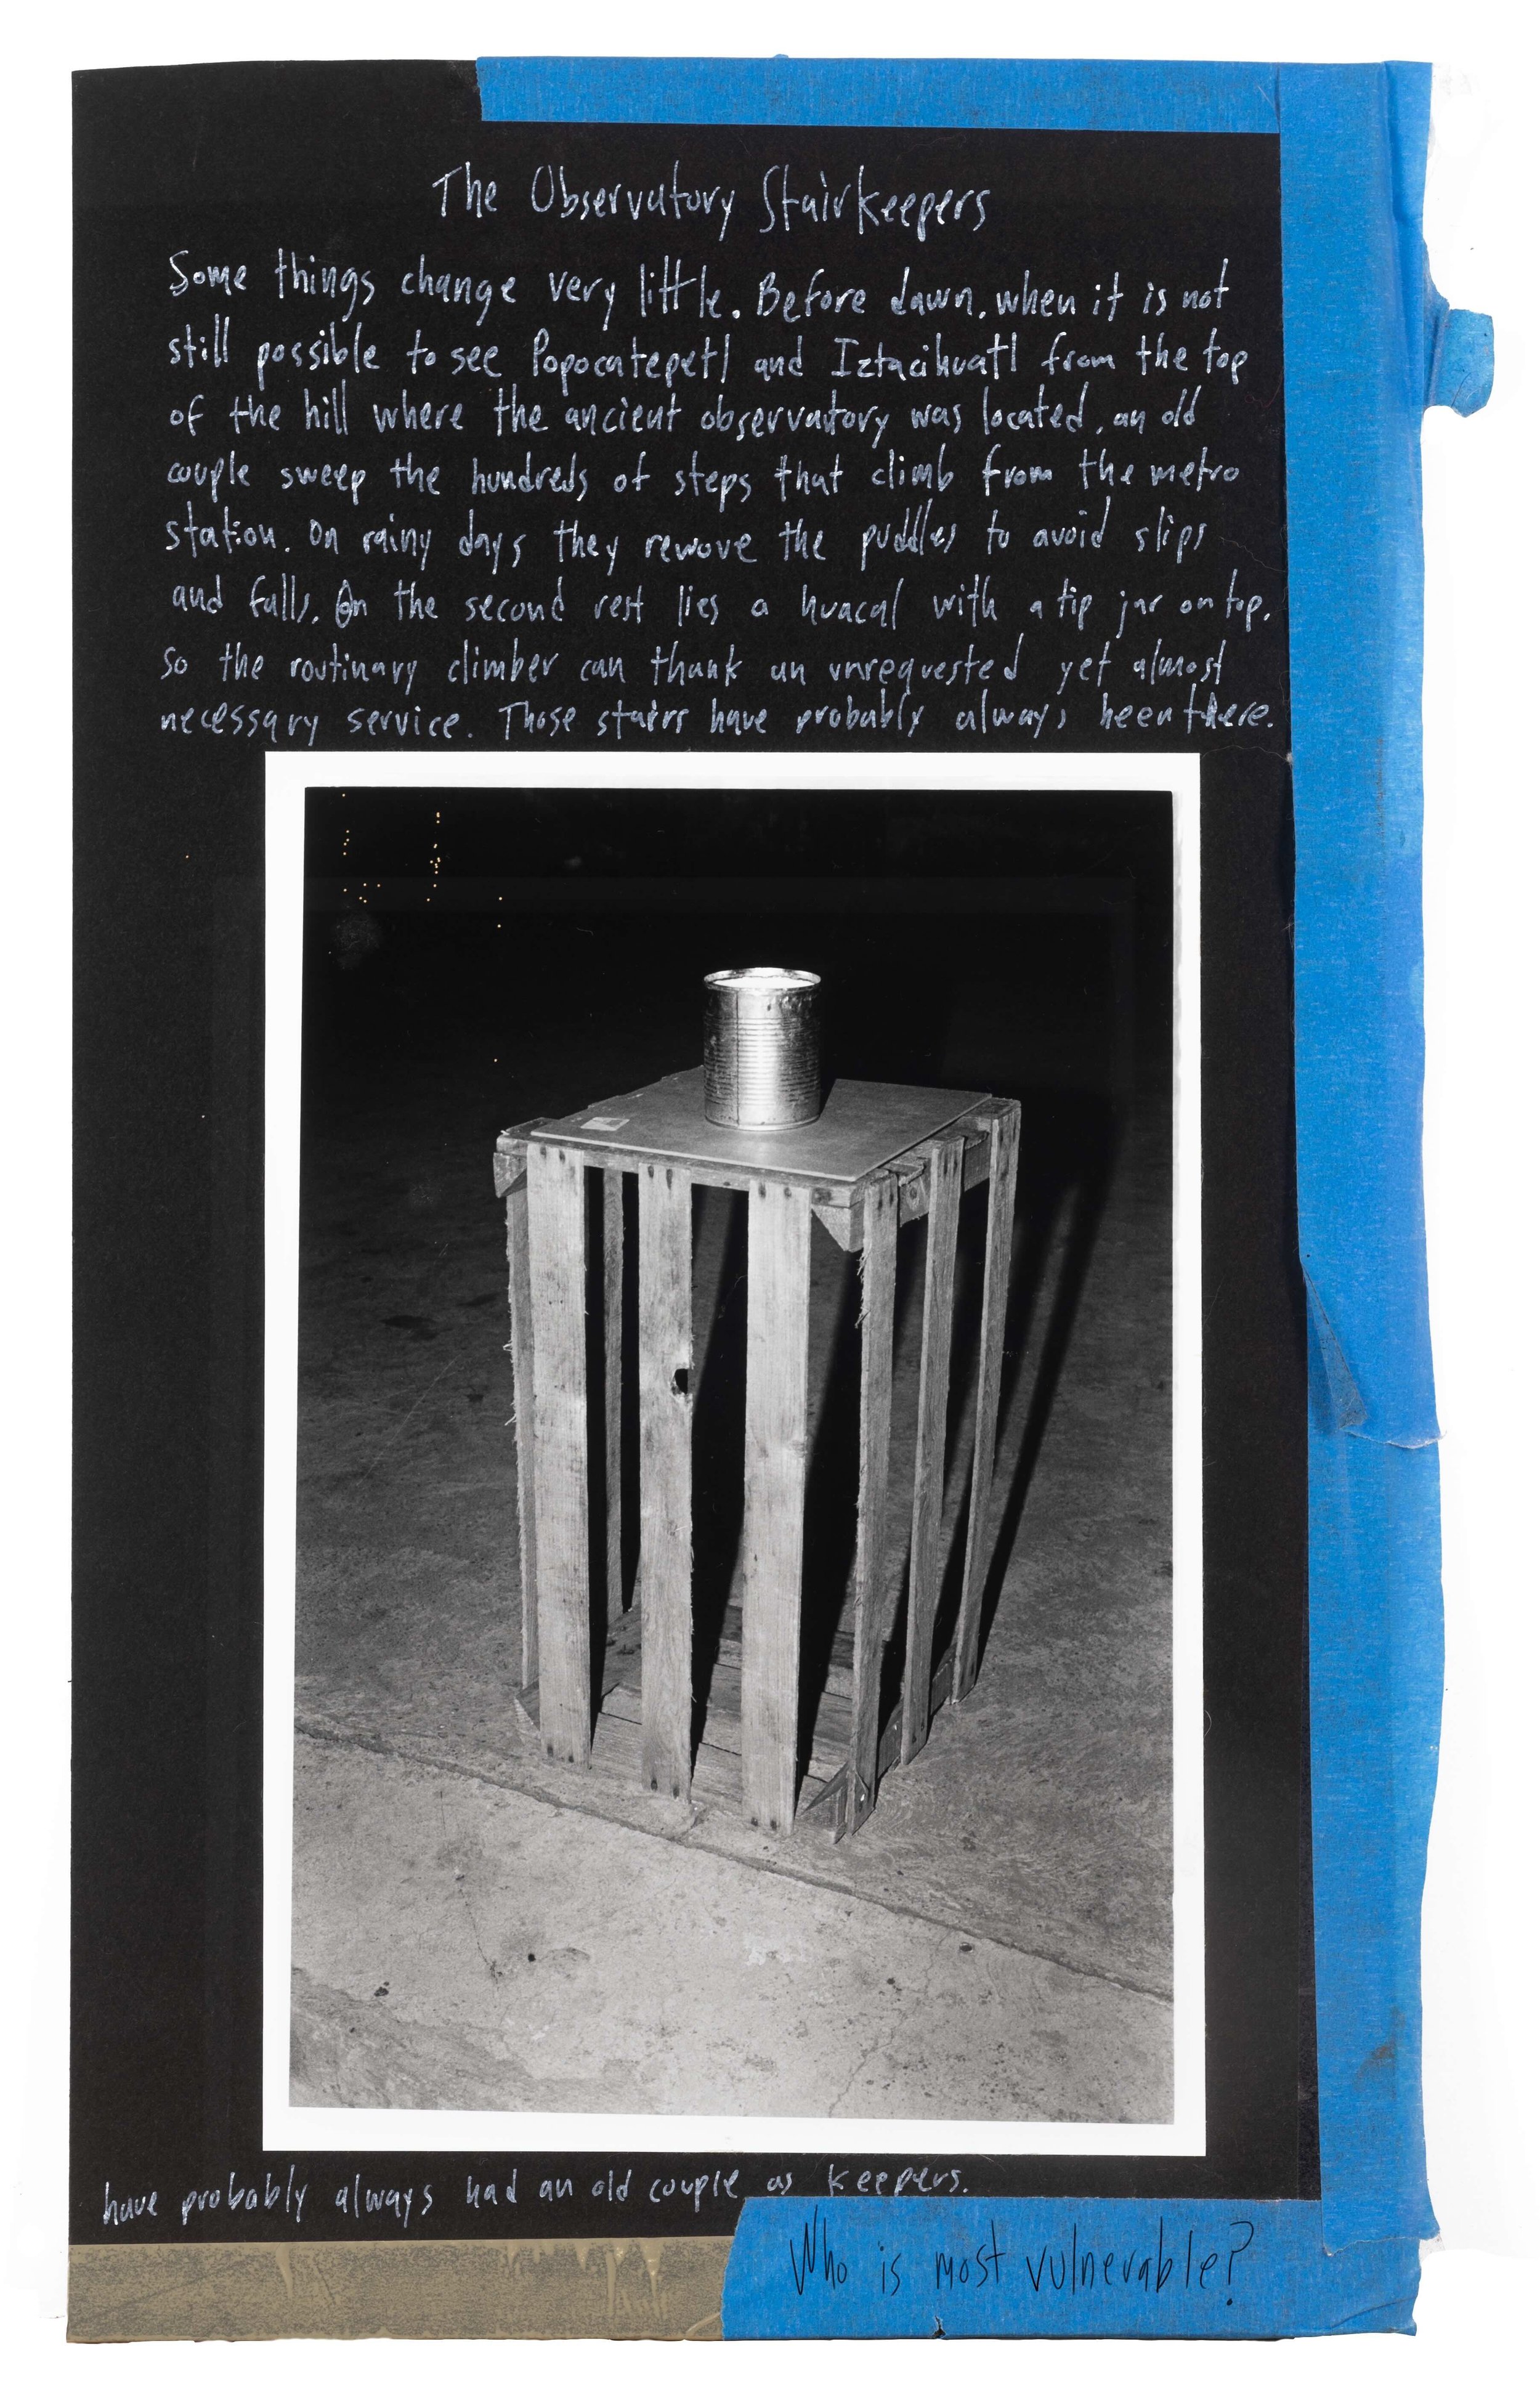 The Observatory Stairkeepers
Some things change very little. Before dawn, when it is not
still possible to see Popocatepetl and Iztacihuatl from the top
of the hill where the ancient observatory was located, an old
couple sweep the hundreds of steps that climb from the metro
station. On rainy days they remove the puddles to avoid slips
and falls. On the second rest lies a huacal with a tip jar on top,
so the routinary climber can thank an unrequested yet almost
necessary service. Those stairs have probably always been there.
have probably always had an old couple as keepers.
Who is most vulnerable?